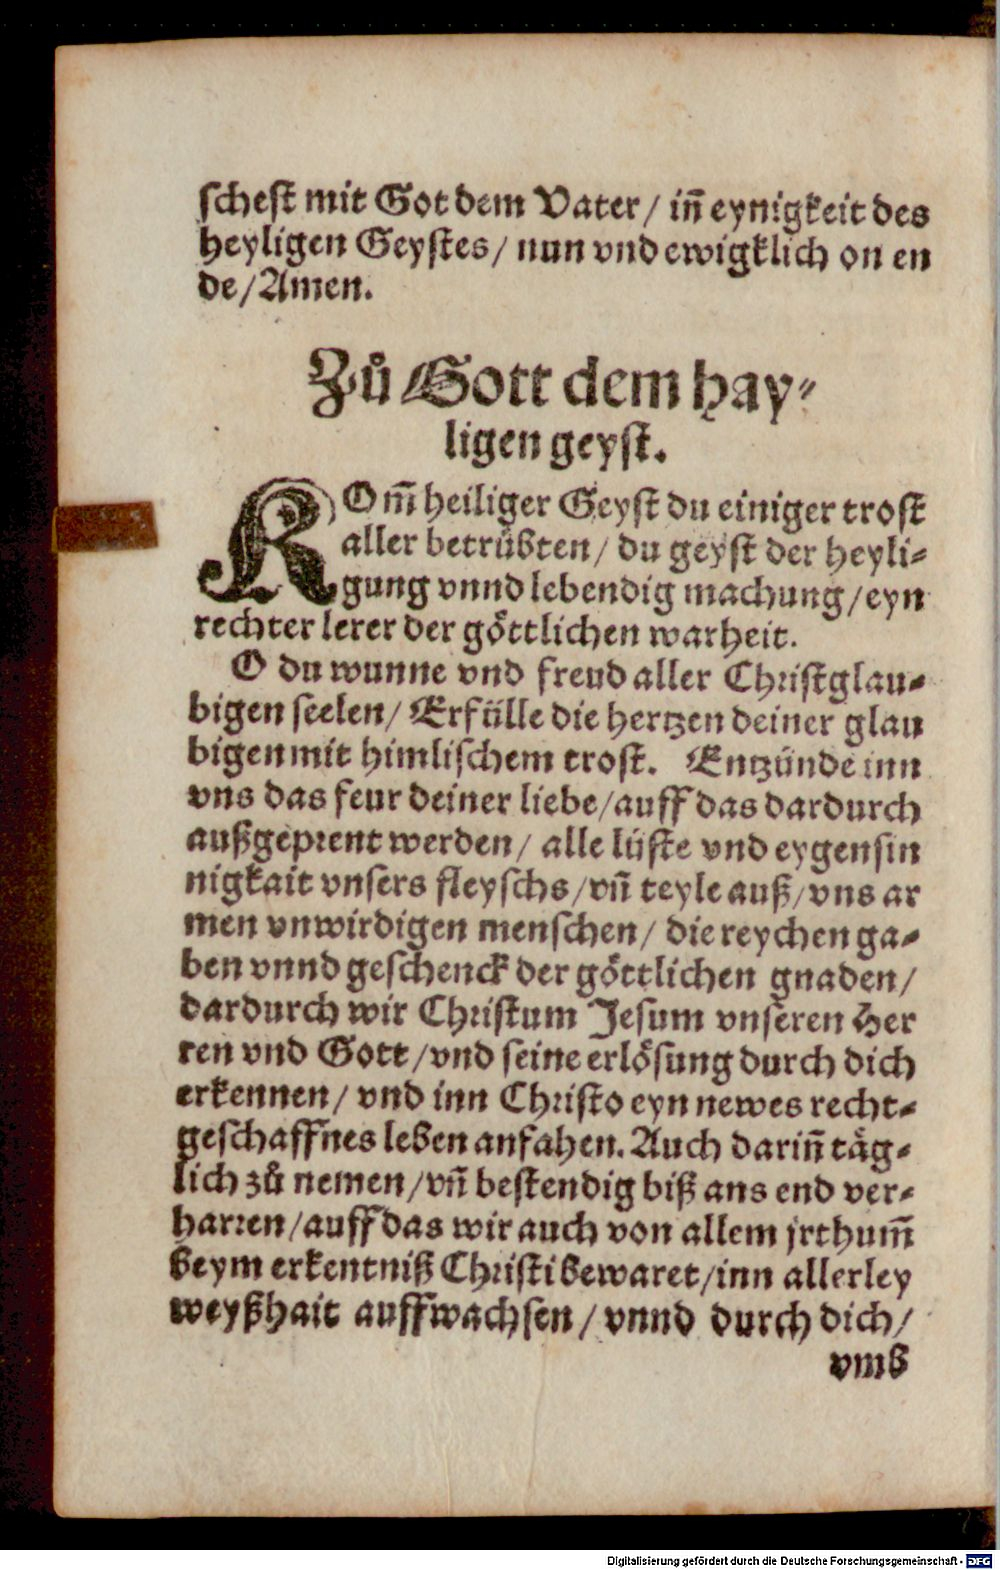 schest mit Got dem Vater / iñ eynigkeit des
heyligen Geystes / nun vnd ewigklich on en
de / Amen.
Zů Gott dem hay-
ligen geyst.
KOm̃ heiliger Geyst du einiger trost
aller betrübten / du geyst der heyli-
gung vnnd lebendig machung / eyn
rechter lerer der göttlichen warheit.
O du wunne vnd freud aller Christglau-
bigen seelen / Erfülle die hertzen deiner glau
bigen mit himlischem trost. Entzünde inn
vns das feur deiner liebe / auff das dardurch
außgeprent werden / alle lüste vnd eygensin
nigkait vnsers fleyschs / vñ teyle auß / vns ar
men vnwirdigen menschen / die reychen ga-
ben vnnd geschenck der göttlichen gnaden /
dardurch wir Christum Jesum vnseren Her
ren vnd Gott / vnd seine erlösung durch dich
erkennen / vnd inn Christo eyn newes recht-
geschaffnes leben anfahen. Auch dariñ täg-
lich zů nemen / vñ bestendig biß ans end ver-
harren / auff das wir auch von allem jrthum̃
beym erkentniß Christi bewaret / inn allerley
weyßhait auffwachsen / vnnd durch dich /
vmb
Digitalisierung gefördert durch die Deutsche Forschungsgemeinschaft - DFG